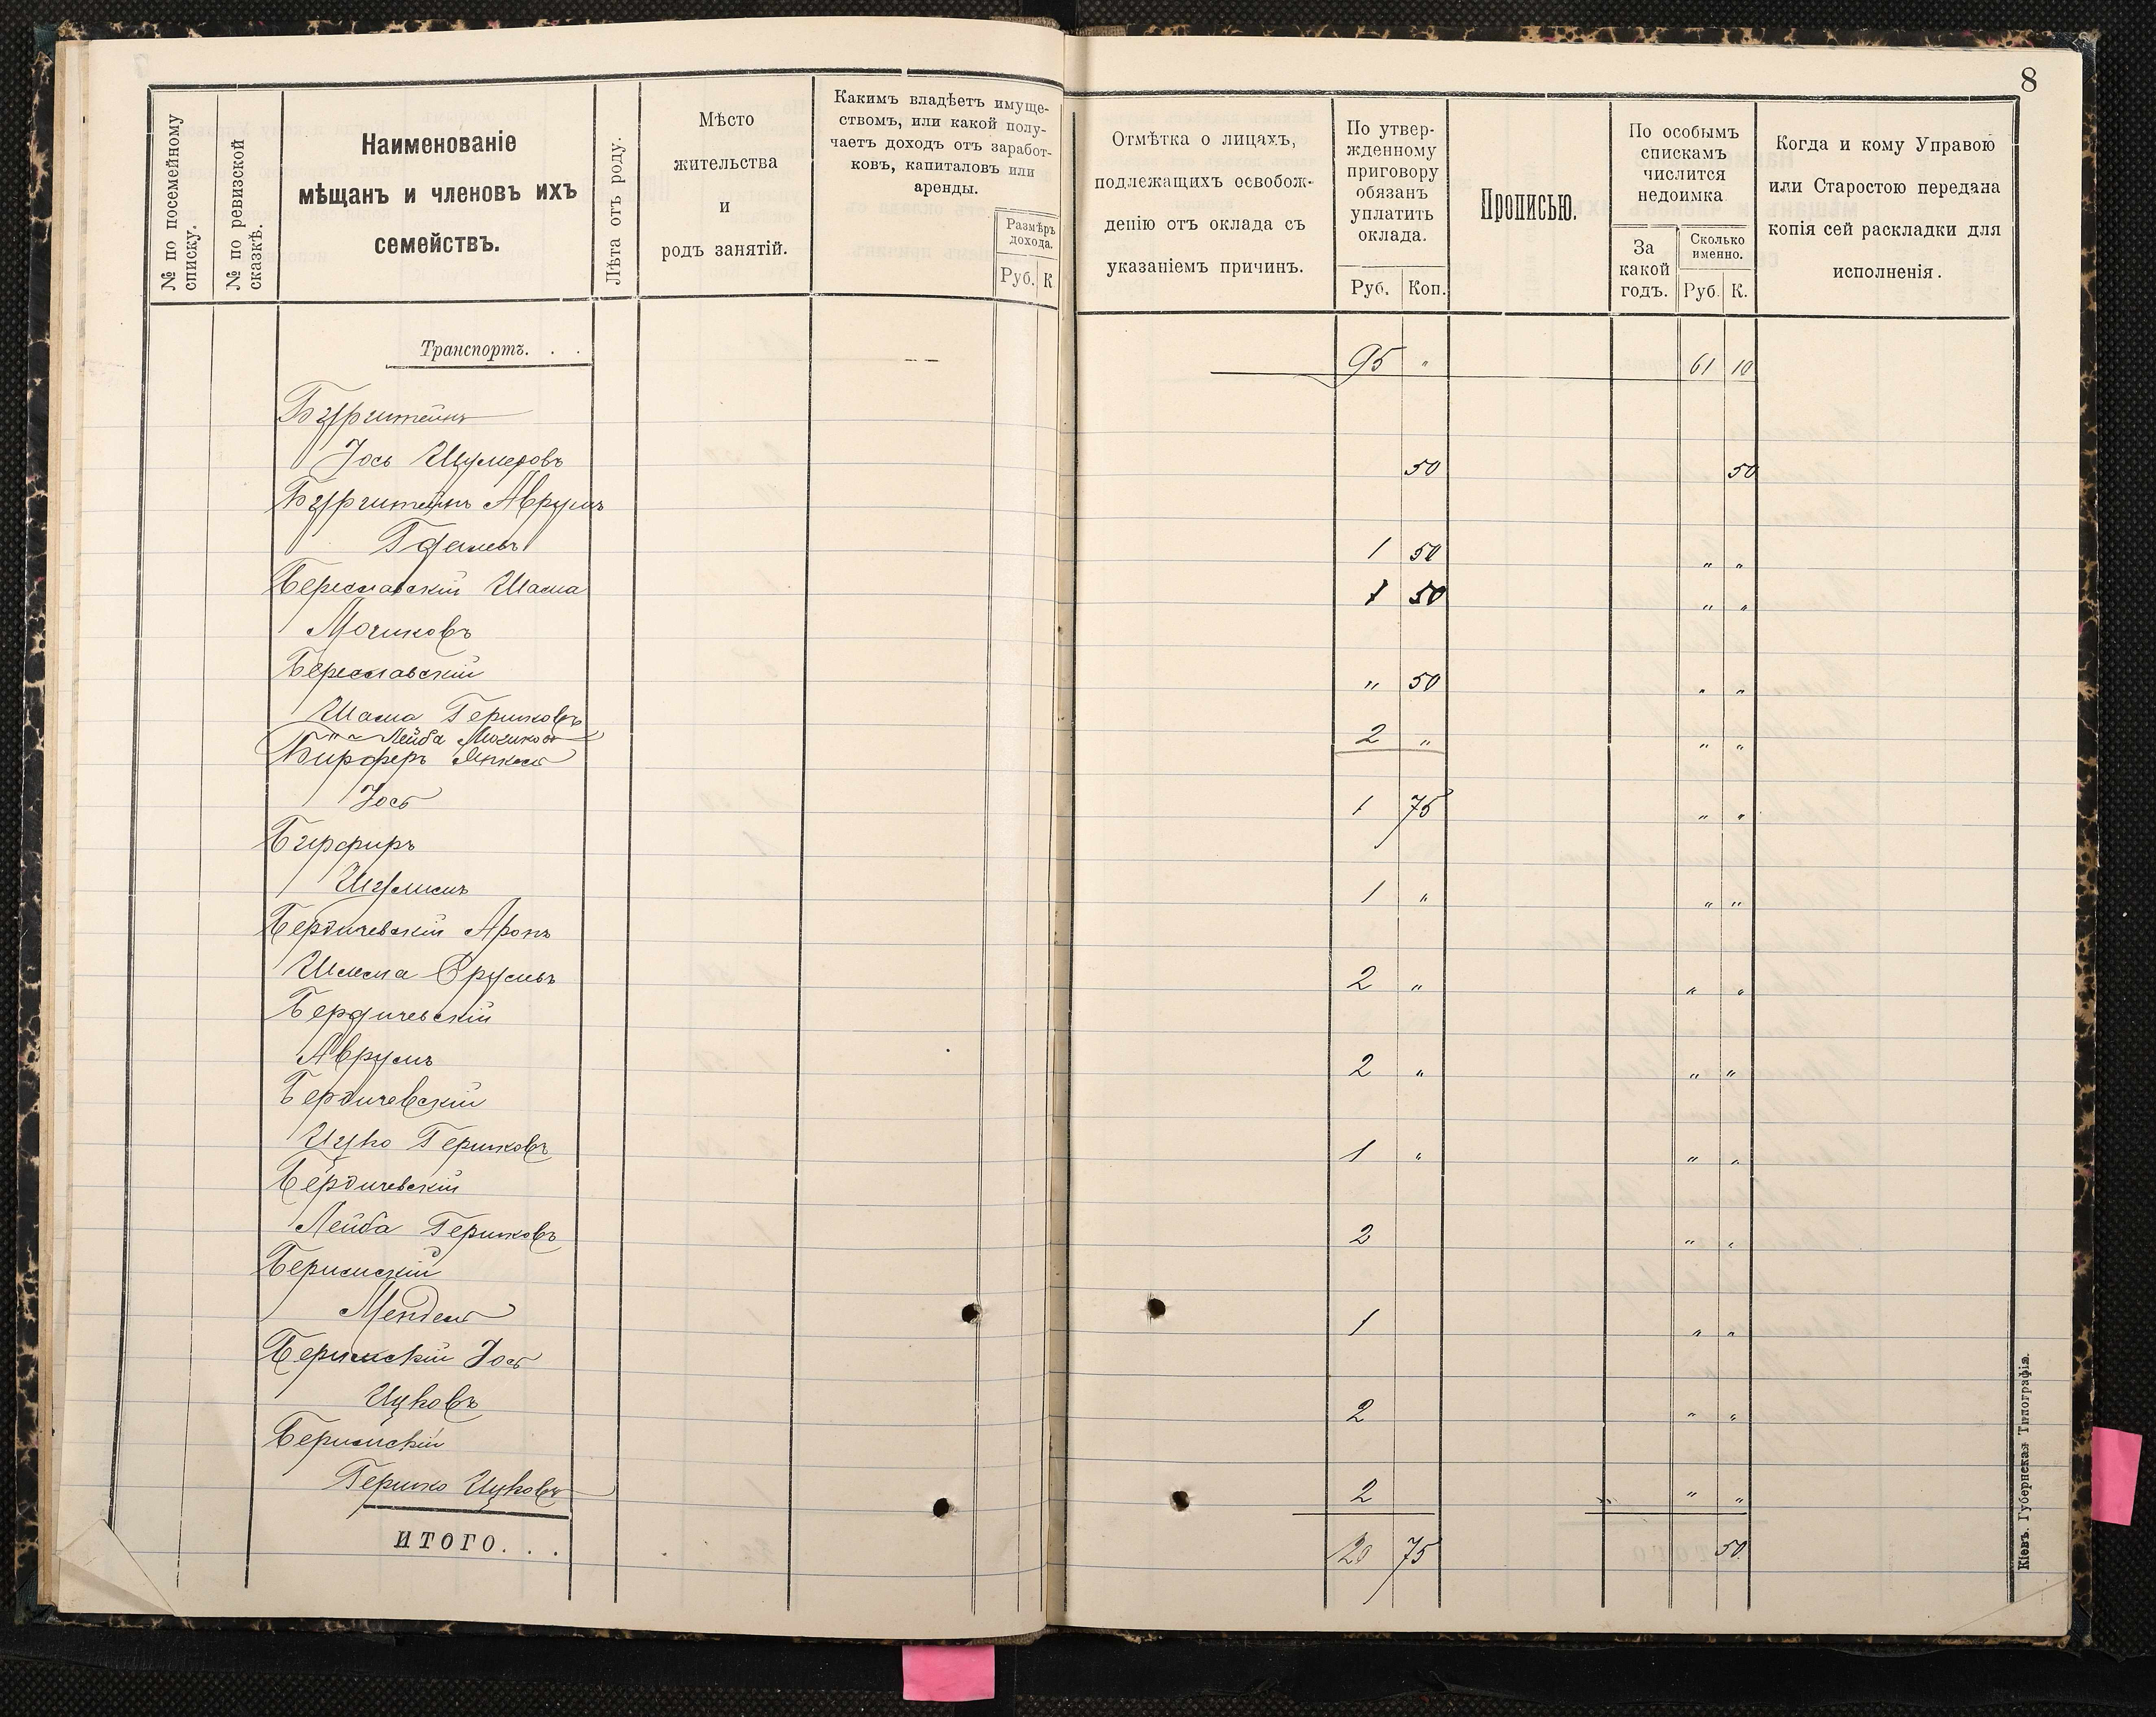 8
№ по посемейному списку.
№ по ревизской сказкѣ.
Наименованіе
мѣщанъ и членовъ ихъ
семействъ.
Лѣта отъ роду.
Мѣсто
жительства
и
родъ занятій.
Какимъ владѣетъ имуще-
ствомъ, или какой полу-
чаетъ доходъ отъ заработ-
ковъ, капиталовъ или
аренды.
Размѣръ
дохода.
Руб. К
Отмѣтка о лицахъ,
подлежащихъ освобож-
денію отъ оклада съ
указаніемъ причинъ.
По утвер-
жденному
приговору
обязанъ
уплатить
оклада.
Руб. Коп.
Прописью.
По особымъ
спискамъ
числится
недоимка
За
какой
годъ.
Сколько
именно.
Руб. К.
Когда и кому Управою
или Старостою передана
копія сей раскладки для
исполненія.
Транспортъ. . . 95 " 61 10
Бурштейнъ
Іось Шумеровъ 50 50
Бурштейнъ Аврумъ
1 50 " "
Береславскій Шама 1 50 " "
Мошковъ
Береславскій " 50 " "
Шама Гершковъ
" " Лейба Мошков 2 " " "
Бирферъ Янкел
Іось 1 75 " "
Бирфиръ
Шулимъ 1 " " "
Бердичевскій Аронъ
Шлема Срумовъ 2 " " "
Бердичевскій
Аврумъ 2 " " "
Бердичевскій
Ицко Гершковъ 1 " " "
Бердичевскій
Лейба Гершковъ 2 " "
Беримскій
Мендел 1 " "
Беримскій Іось
Ицковъ 2 " "
Беримскій
Гершко Ицковъ 2 " "
ИТОГО. . . 20 75 50
Кіевъ. Губернская Типографія.